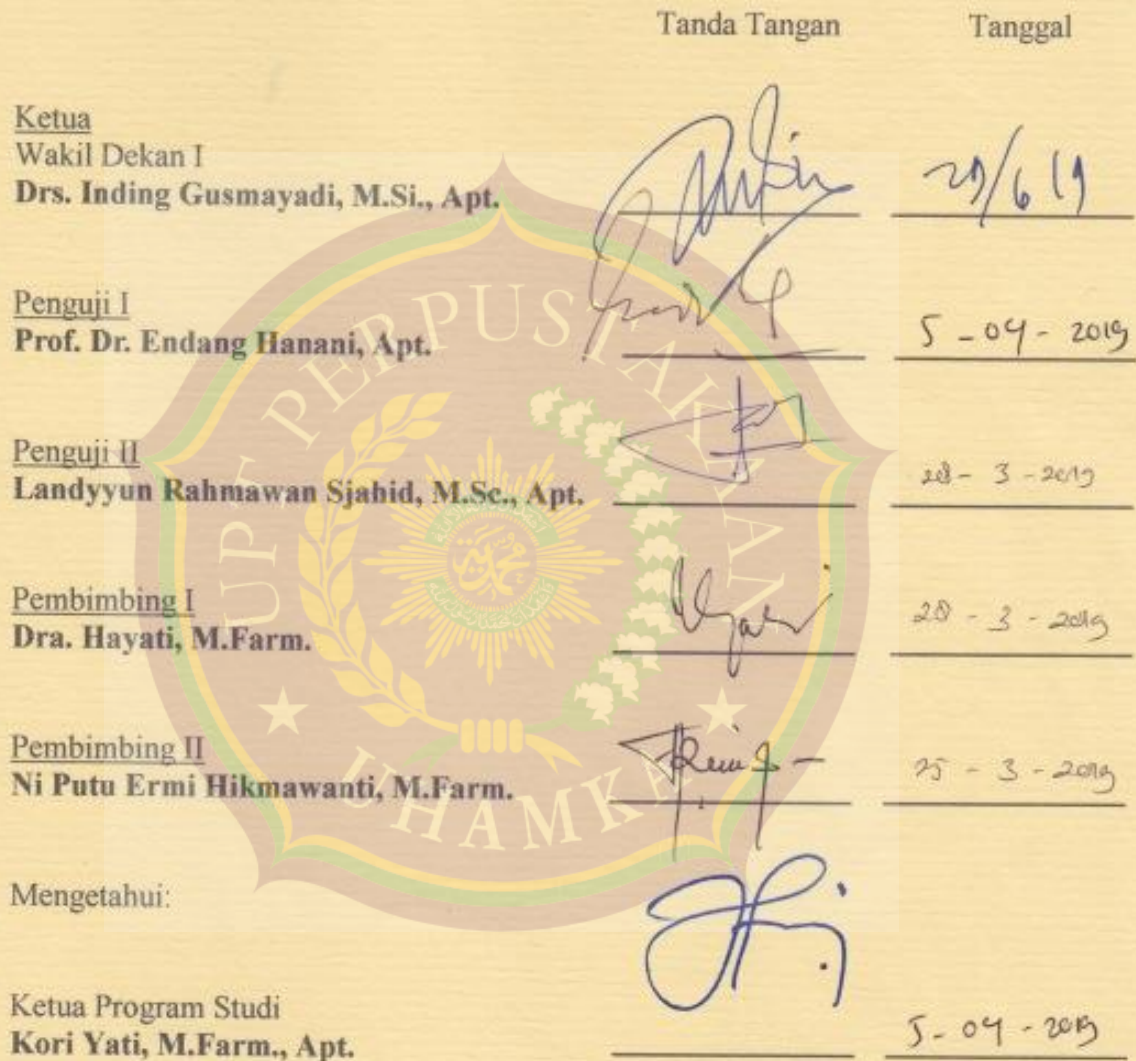 Tanda Tangan Tanggal
Ketua
Wakil Dekan I
Drs. Inding Gusmayadi, M.Si., Apt. 29/6 19
Penguji I
Prof. Dr. Endang Hanani, Apt. 5 - 04 - 2019
Penguji II
Landyyun Rahmawan Sjahid, M.Sc., Apt. 28 - 3 - 2019
Pembimbing I
Dra. Hayati, M.Farm. 28 - 3 - 2019
Pembimbing II
Ni Putu Ermi Hikmawanti, M.Farm. 25 - 3 - 2019
Mengetahui:
Ketua Program Studi
Kori Yati, M.Farm., Apt. 5 - 04 - 2019
UPT PERPUSTAKAAN
UHAMKA